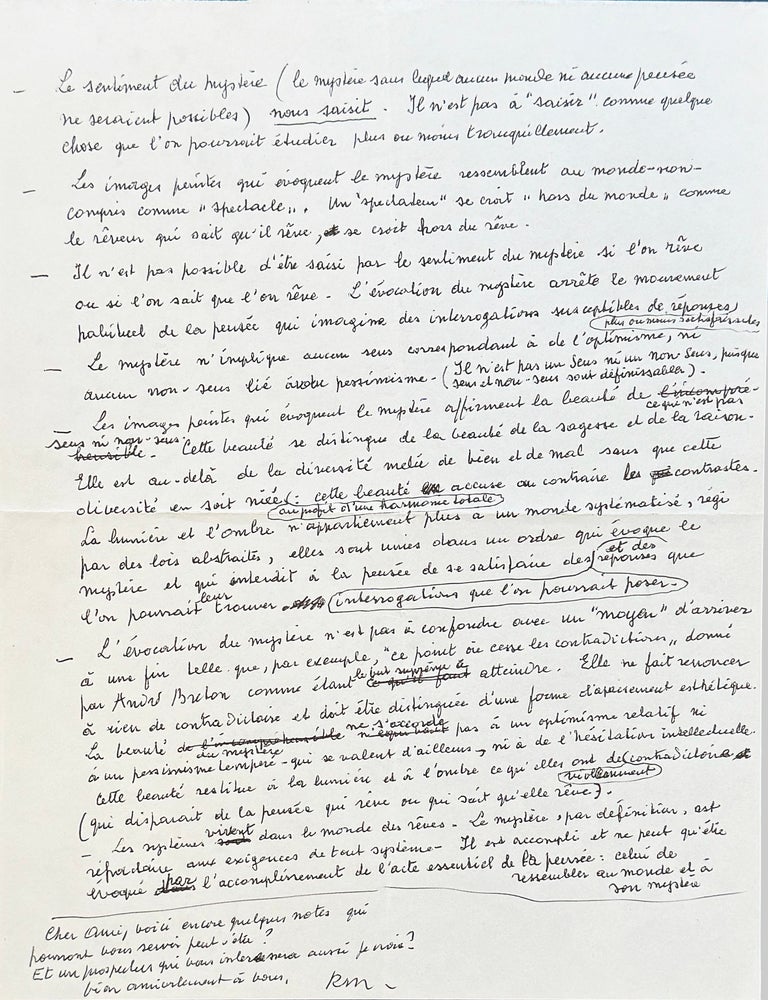 – Le sentiment du mystère (le mystère sans lequel aucun monde ni aucune pensée
ne seraient possibles) nous saisit. Il n'est pas à "saisir" comme quelque
chose que l'on pourrait étudier plus ou moins tranquillement.
– Les images peintes qui évoquent le mystère ressemblent au monde-non-
compris comme "spectacle". Un "spectateur" se croit "hors du monde" comme
le rêveur qui sait qu'il rêve, se croit hors du rêve.
– Il n'est pas possible d'être saisi par le sentiment du mystère si l'on rêve
ou si l'on sait que l'on rêve. L'évocation du mystère arrête le mouvement
habituel de la pensée qui imagine des interrogations susceptibles de réponses
plus ou moins satisfaisantes
– Le mystère n'implique aucun sens correspondant à de l'optimisme, ni
aucun non-sens lié à du pessimisme. (Il n'est pas un Sens ni un Non-Sens, puisque
sens et non-sens sont définissables).
– Les images peintes qui évoquent le mystère affirment la beauté de l'incompré-
ce qui n'est pas
sens ni non-sens
hensible. Cette beauté se distingue de la beauté de la sagesse et de la raison.
Elle est au-delà de la diversité mêlée de bien et de mal sans que cette
diversité en soit niée: cette beauté accuse au contraire les contrastes.
au profit d'une harmonie totale
La lumière et l'ombre n'appartiennent plus à un monde systématisé, régi
par des lois abstraites, elles sont unies dans un ordre qui évoque le
mystère et qui interdit à la pensée de se satisfaire des réponses que
et des
l'on pourrait leur trouver interrogations que l'on pourrait poser.
– L'évocation du mystère n'est pas à confondre avec un "moyen" d'arriver
à une fin telle que, par exemple, "ce point où cesse les contradictions" donné
par André Breton comme étant le but suprême à ce qu'il faut atteindre. Elle ne fait renoncer
à rien de contradictoire et doit être distinguée d'une forme d'apaisement esthétique.
La beauté de l'incompréhensible du mystère ne s'accorde pas à un optimisme relatif ni
à un pessimisme tempéré – qui se valent d'ailleurs –, ni à de l'hésitation intellectuelle.
Cette beauté restitue à la lumière et à l'ombre ce qu'elles ont de contradictoire
violemment
(qui disparait de la pensée qui rêve ou qui sait qu'elle rêve).
– Les systèmes vivent dans le monde des rêves. Le mystère, par définition, est
réfractaire aux exigences de tout système. Il est accompli et ne peut qu'être
évoqué par l'accomplissement de l'acte essentiel de la pensée: celui de
ressembler au monde et à
son mystère
Cher Ami, voici encore quelques notes qui
pourront vous servir peut-être?
Et un prospectus qui vous intéressera aussi je crois?
bien amicalement à vous,
RM